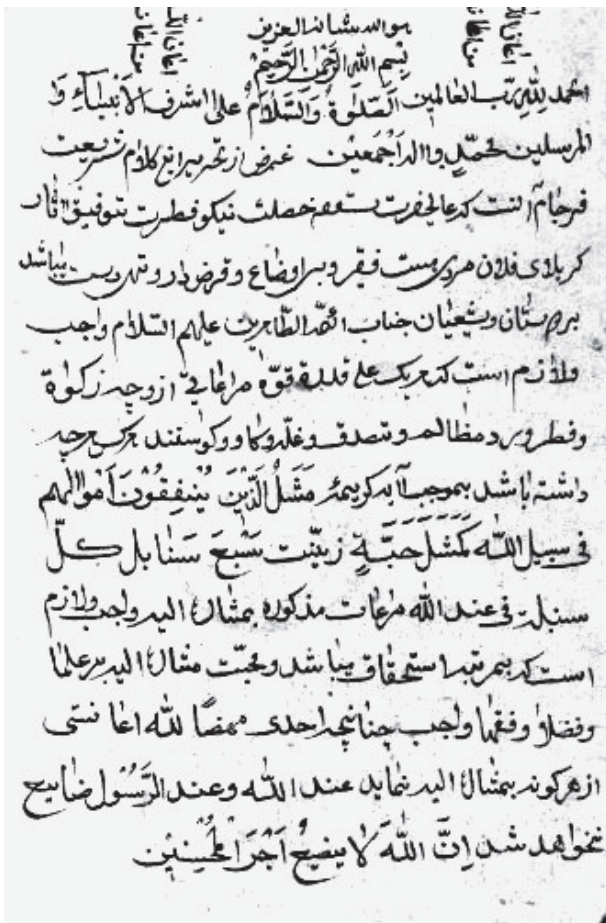 هوالله شانه العزیز
بِسْمِ اللهِ الرَّحْمٰنِ الرَّحِیْمِ
الحمد لِلّٰهِ رَبِّ العالمین اَلصَّلٰوةُ وَالسَّلَامُ علیٰ اشرف الاَنْبِیَآءِ وَ
المرسلین مُحَمَّدٍ وآاله اَجْمَعِیْن غرض از تحریر این کلام شریعت
فرجام آنست که عالیحضرت خصلت نیکو فطرت توفیق آثار
کربلای فلان مردی است فقیر و بی اوضاع و قرضدار و تهی دست میباشد
بر دوستان و شیعیان جناب ائمّه الطّاهرین علیهم السّلام واجب
ولازم است که هریک علی قدر قوّة مراعاتی از وجه زکوٰة
وفطر و رد مظالم و تصدق و غلّه و گاو و گوسفند هرکس هرچه
داشته باشد بموجب آیه کریمه مَثَلُ الَّذِیْنَ یُنْفِقُوْنَ اَمْوالَهم
فی سبیل اللّٰه کَمَثَلِ حَبَّةٍ زینّت سَبْعَ سَنٰابل کلّ
سنبلة فی عند اللّٰه مراعات مذکوره بمشارٌ الیه واجب ولازم
است که بمرتبه استحقاق میباشد و محبّت مشارٌ الیه بر علما
وفضلا و فقها واجب چنانچه احدی ممضًا للّٰه اعانتی
از هرگونه بمشارٌ الیه نماید عند اللّٰه وعند الرَّسُول ضایع
نخواهد شد اِنَّ اللّٰهَ لٰا یضیعُ اَجْرَ الْمُحْسِنِیْن